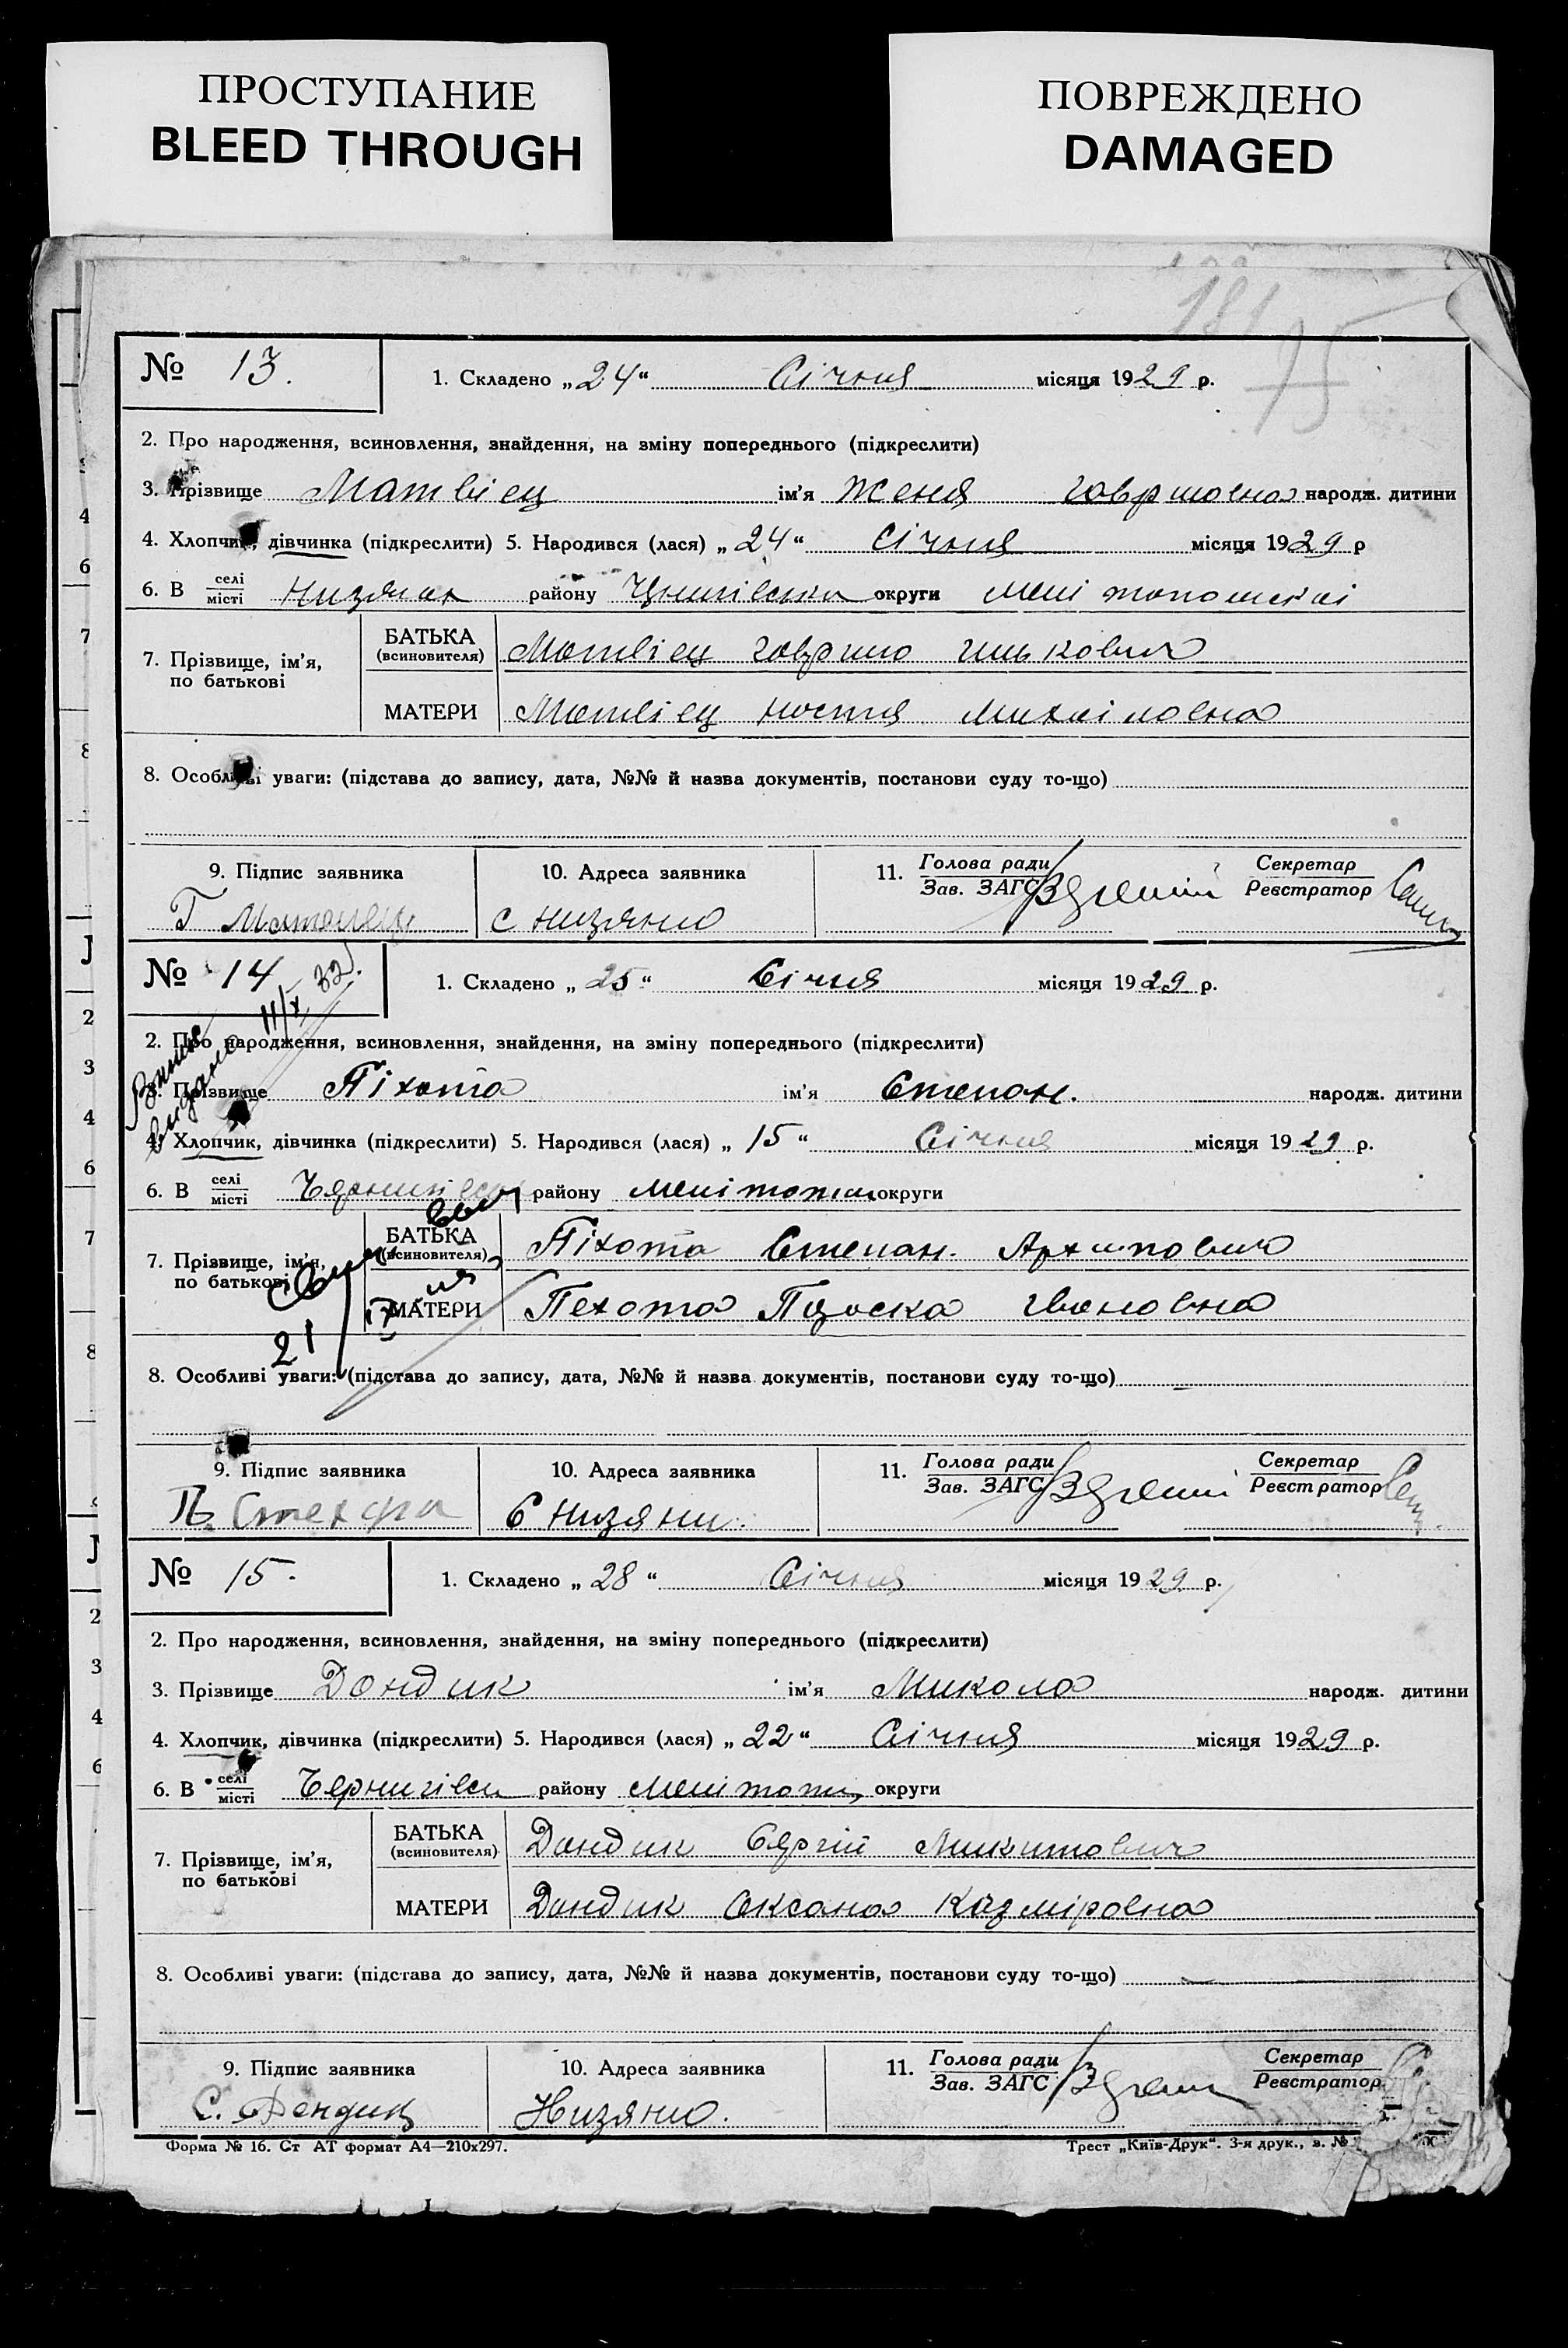 ПРОСТУПАНИЕ
BLEED THROUGH
ПОВРЕЖДЕНО
DAMAGED
181
75
№ 13.
1. Складено „24“ Січня місяця 1929 р.
2. Про народження, всиновлення, знайдення, на зміну попереднього (підкреслити)
3. Прізвище Матвіец ім’я Женя Гавриловна народж. дитини
4. Хлопчик, дівчинка (підкреслити) 5. Народився (лася) „24“ Січня місяця 1929 р
6. В селі/місті Низяни району округи
7. Прізвище, ім’я, по батькові
БАТЬКА (всиновителя) Матвіец Гаврило
МАТЕРИ Матвіец Настя Михаіловна
8. Особливі уваги: (підстава до запису, дата, №№ й назва документів, постанови суду то-що)
9. Підпис заявника
10. Адреса заявника
11. Голова ради/Зав. ЗАГС Секретар/Реєстратор
Г с Низяно
№ 14
11/X 32
1. Складено „25“ Січня місяця 1929 р.
2. Про народження, всиновлення, знайдення, на зміну попереднього (підкреслити)
3. Прізвище Піхота ім’я Степан. народж. дитини
4. Хлопчик, дівчинка (підкреслити) 5. Народився (лася) „15“ Січня місяця 1929 р.
6. В селі/місті району Мелітопол округи
7. Прізвище, ім’я, по батькові
БАТЬКА (всиновителя) Піхота Степан. Архипович
МАТЕРИ Пехота Ивановна
21
8. Особливі уваги: (підстава до запису, дата, №№ й назва документів, постанови суду то-що)
9. Підпис заявника
10. Адреса заявника
11. Голова ради/Зав. ЗАГС Секретар/Реєстратор
С Низяни.
№ 15.
1. Складено „28“ Січня місяця 1929 р.
2. Про народження, всиновлення, знайдення, на зміну попереднього (підкреслити)
3. Прізвище Дондик ім’я Микола народж. дитини
4. Хлопчик, дівчинка (підкреслити) 5. Народився (лася) „22“ Січня місяця 1929 р.
6. В селі/місті Чернигівск району Мелітопол округи
7. Прізвище, ім’я, по батькові
БАТЬКА (всиновителя) Дондик Сергій Микитович
МАТЕРИ Дондик Оксана Казміровна
8. Особливі уваги: (підстава до запису, дата, №№ й назва документів, постанови суду то-що)
9. Підпис заявника
10. Адреса заявника
11. Голова ради/Зав. ЗАГС Секретар/Реєстратор
С. Дендик Низяно.
Форма № 16. Ст АТ формат А4—210х297.
Трест „Київ-Друк“. 3-я друк., з. №